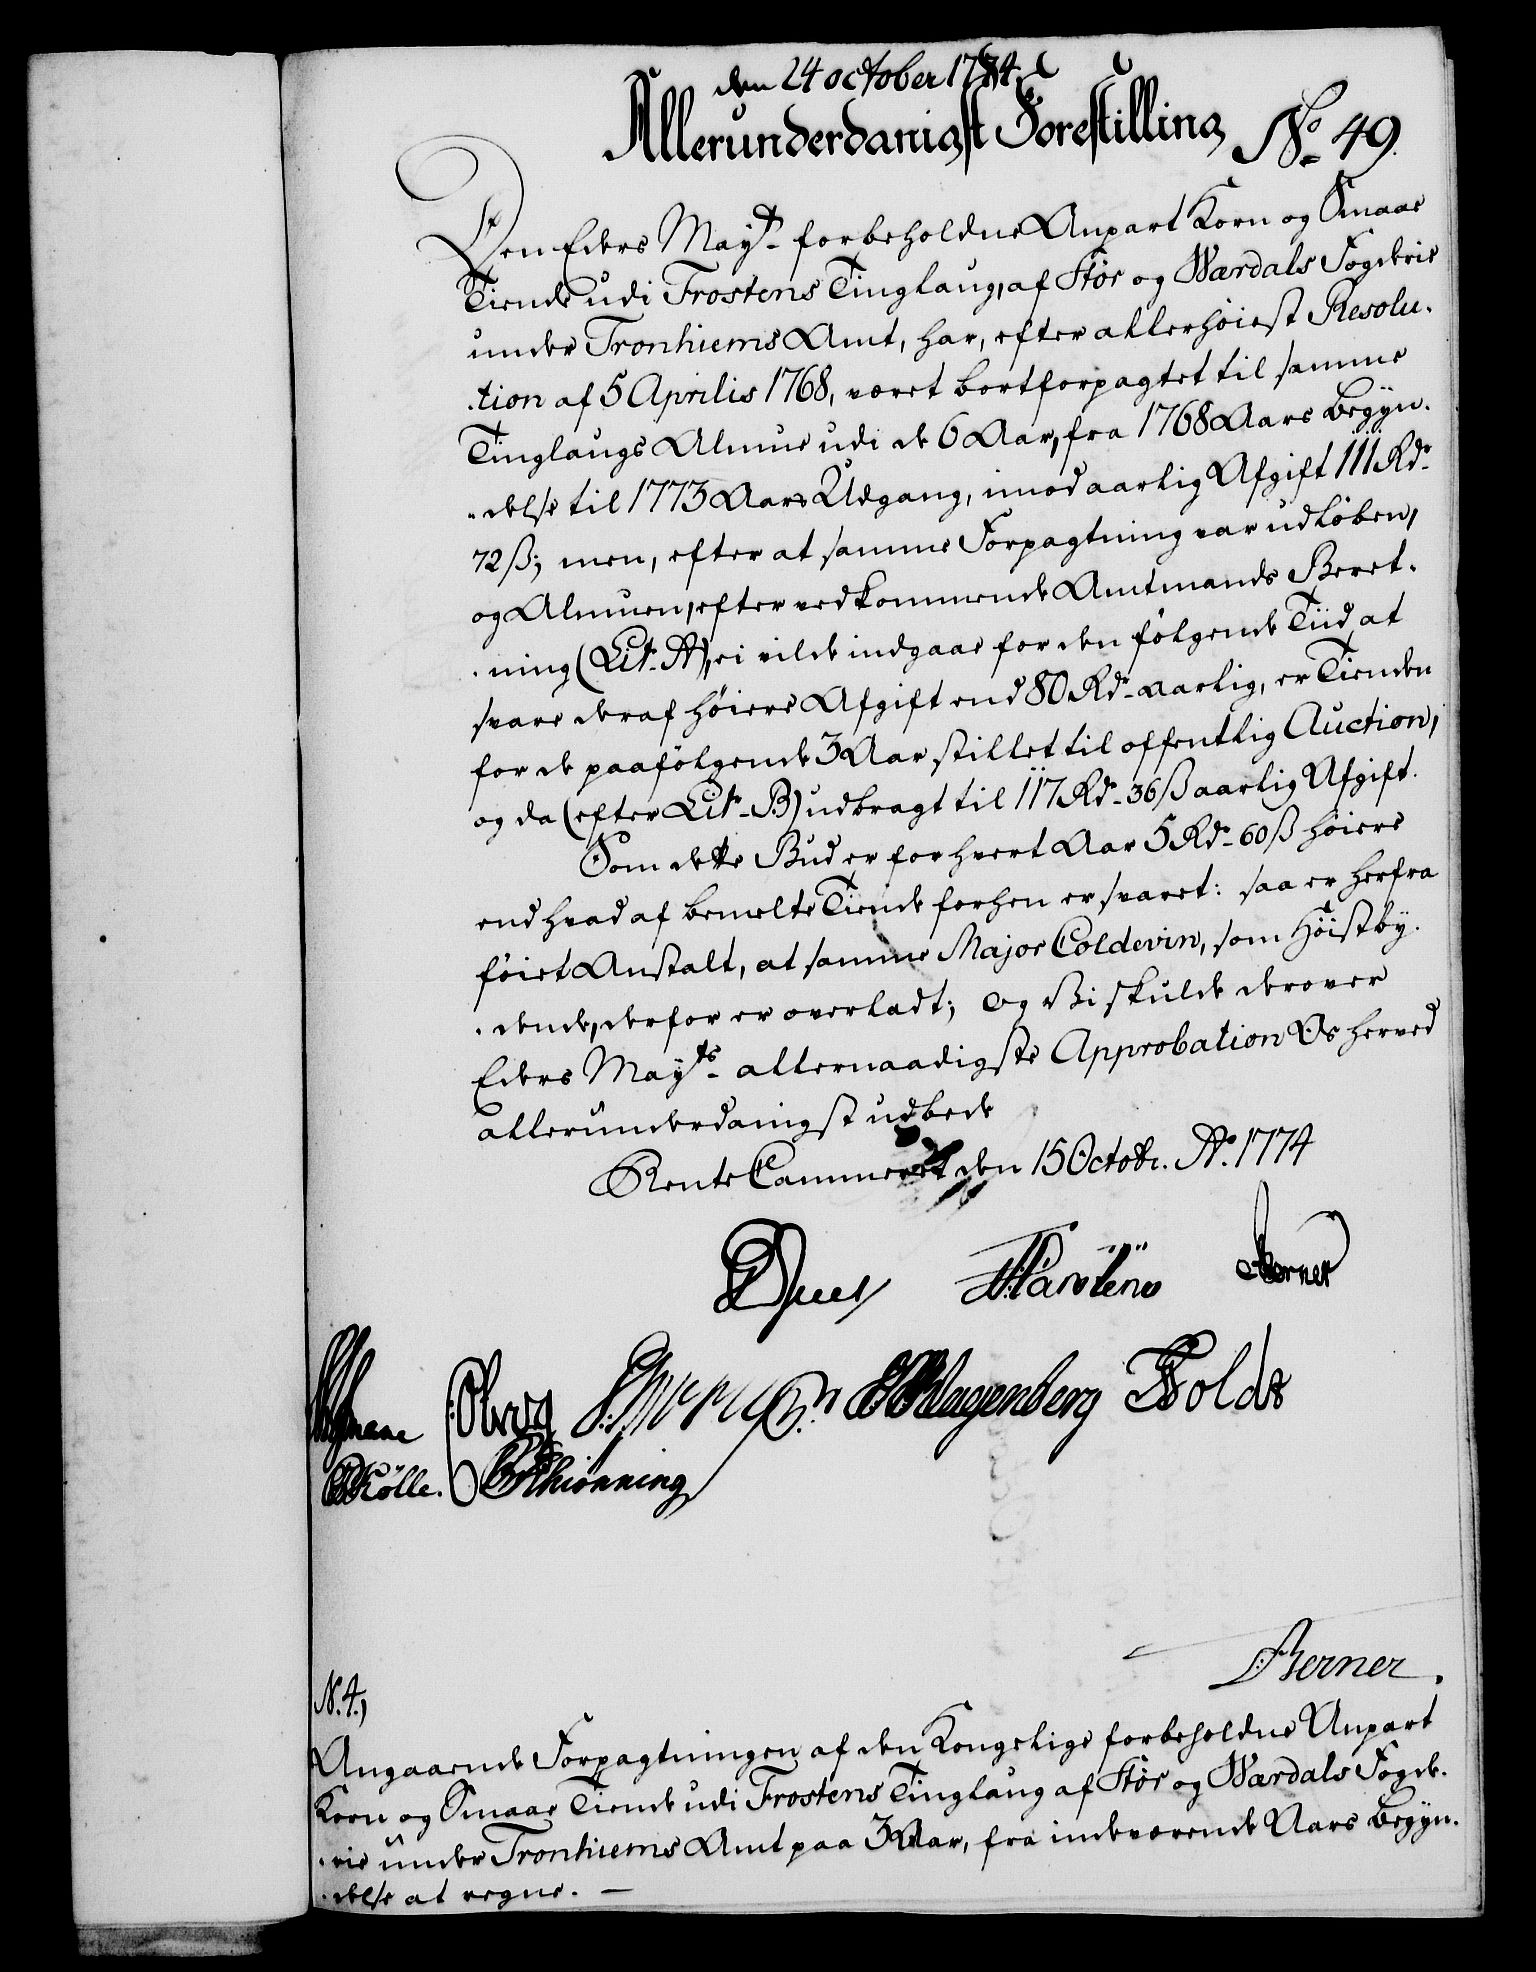 den 24 october 1774
Allerunderdanigst Forestilling No 49.
Den Eders Mayts forbeholdne Anpart Korn og Smaae
Tiende udi Frostens Tinglaug, af Stör og Wærdals Fogderie
under Tronhiems Amt, har, efter allerhöiest Resolu-
-tion af 5 Aprilis 1768, været bortforpagtet til samme
Tinglaugs Almue udi de 6 Aar, fra 1768 Aars Begÿn-
-delse til 1773 Aars Udgang, imod aarlig Afgift 111 Rdr
72 ß; men, efter at samme Forpagtning var udlöben,
og Almuen, efter vedkommende Amtmands Beret-
-ning (Litr A), ei vilde indgaae for den fölgende Tiid at
svare deraf höiere Afgift end 80 Rdr aarlig, er Tienden
for de paafölgende 3 Aar stillet til offentlig Auction,
og da (efter Litr B) udbragt til 117 Rdr 36 ß aarlig Afgift.
Som dette Bud er for hvert Aar 5 Rdr 60 ß höiere
end hvad af bemelte Tiende forhen er svaret: saa er herfra
föiet Anstalt, at samme Major Coldevin, som Höistbÿ-
-dende, derfor er overladt; og Vi skulde derover
Eders Mayts allernaadigste Approbation Os herved
allerunderdanigst udbede
Rente Cammeret den 15 Octobr. Ao. 1774
Juel Martens Berner
Obwg Klagenberg Holdt
Kölle. Schiönning
Berner.
N. 4,
Angaaende Forpagtningen af den Kongelige forbeholdne Anpart
Korn og Smaae Tiende udi Frostens Tinglaug af Stör og Wærdals Fogde-
-rie under Tronhiems Amt paa 3 Aar, fra indeværende Aars Begÿn-
-delse at regne. —